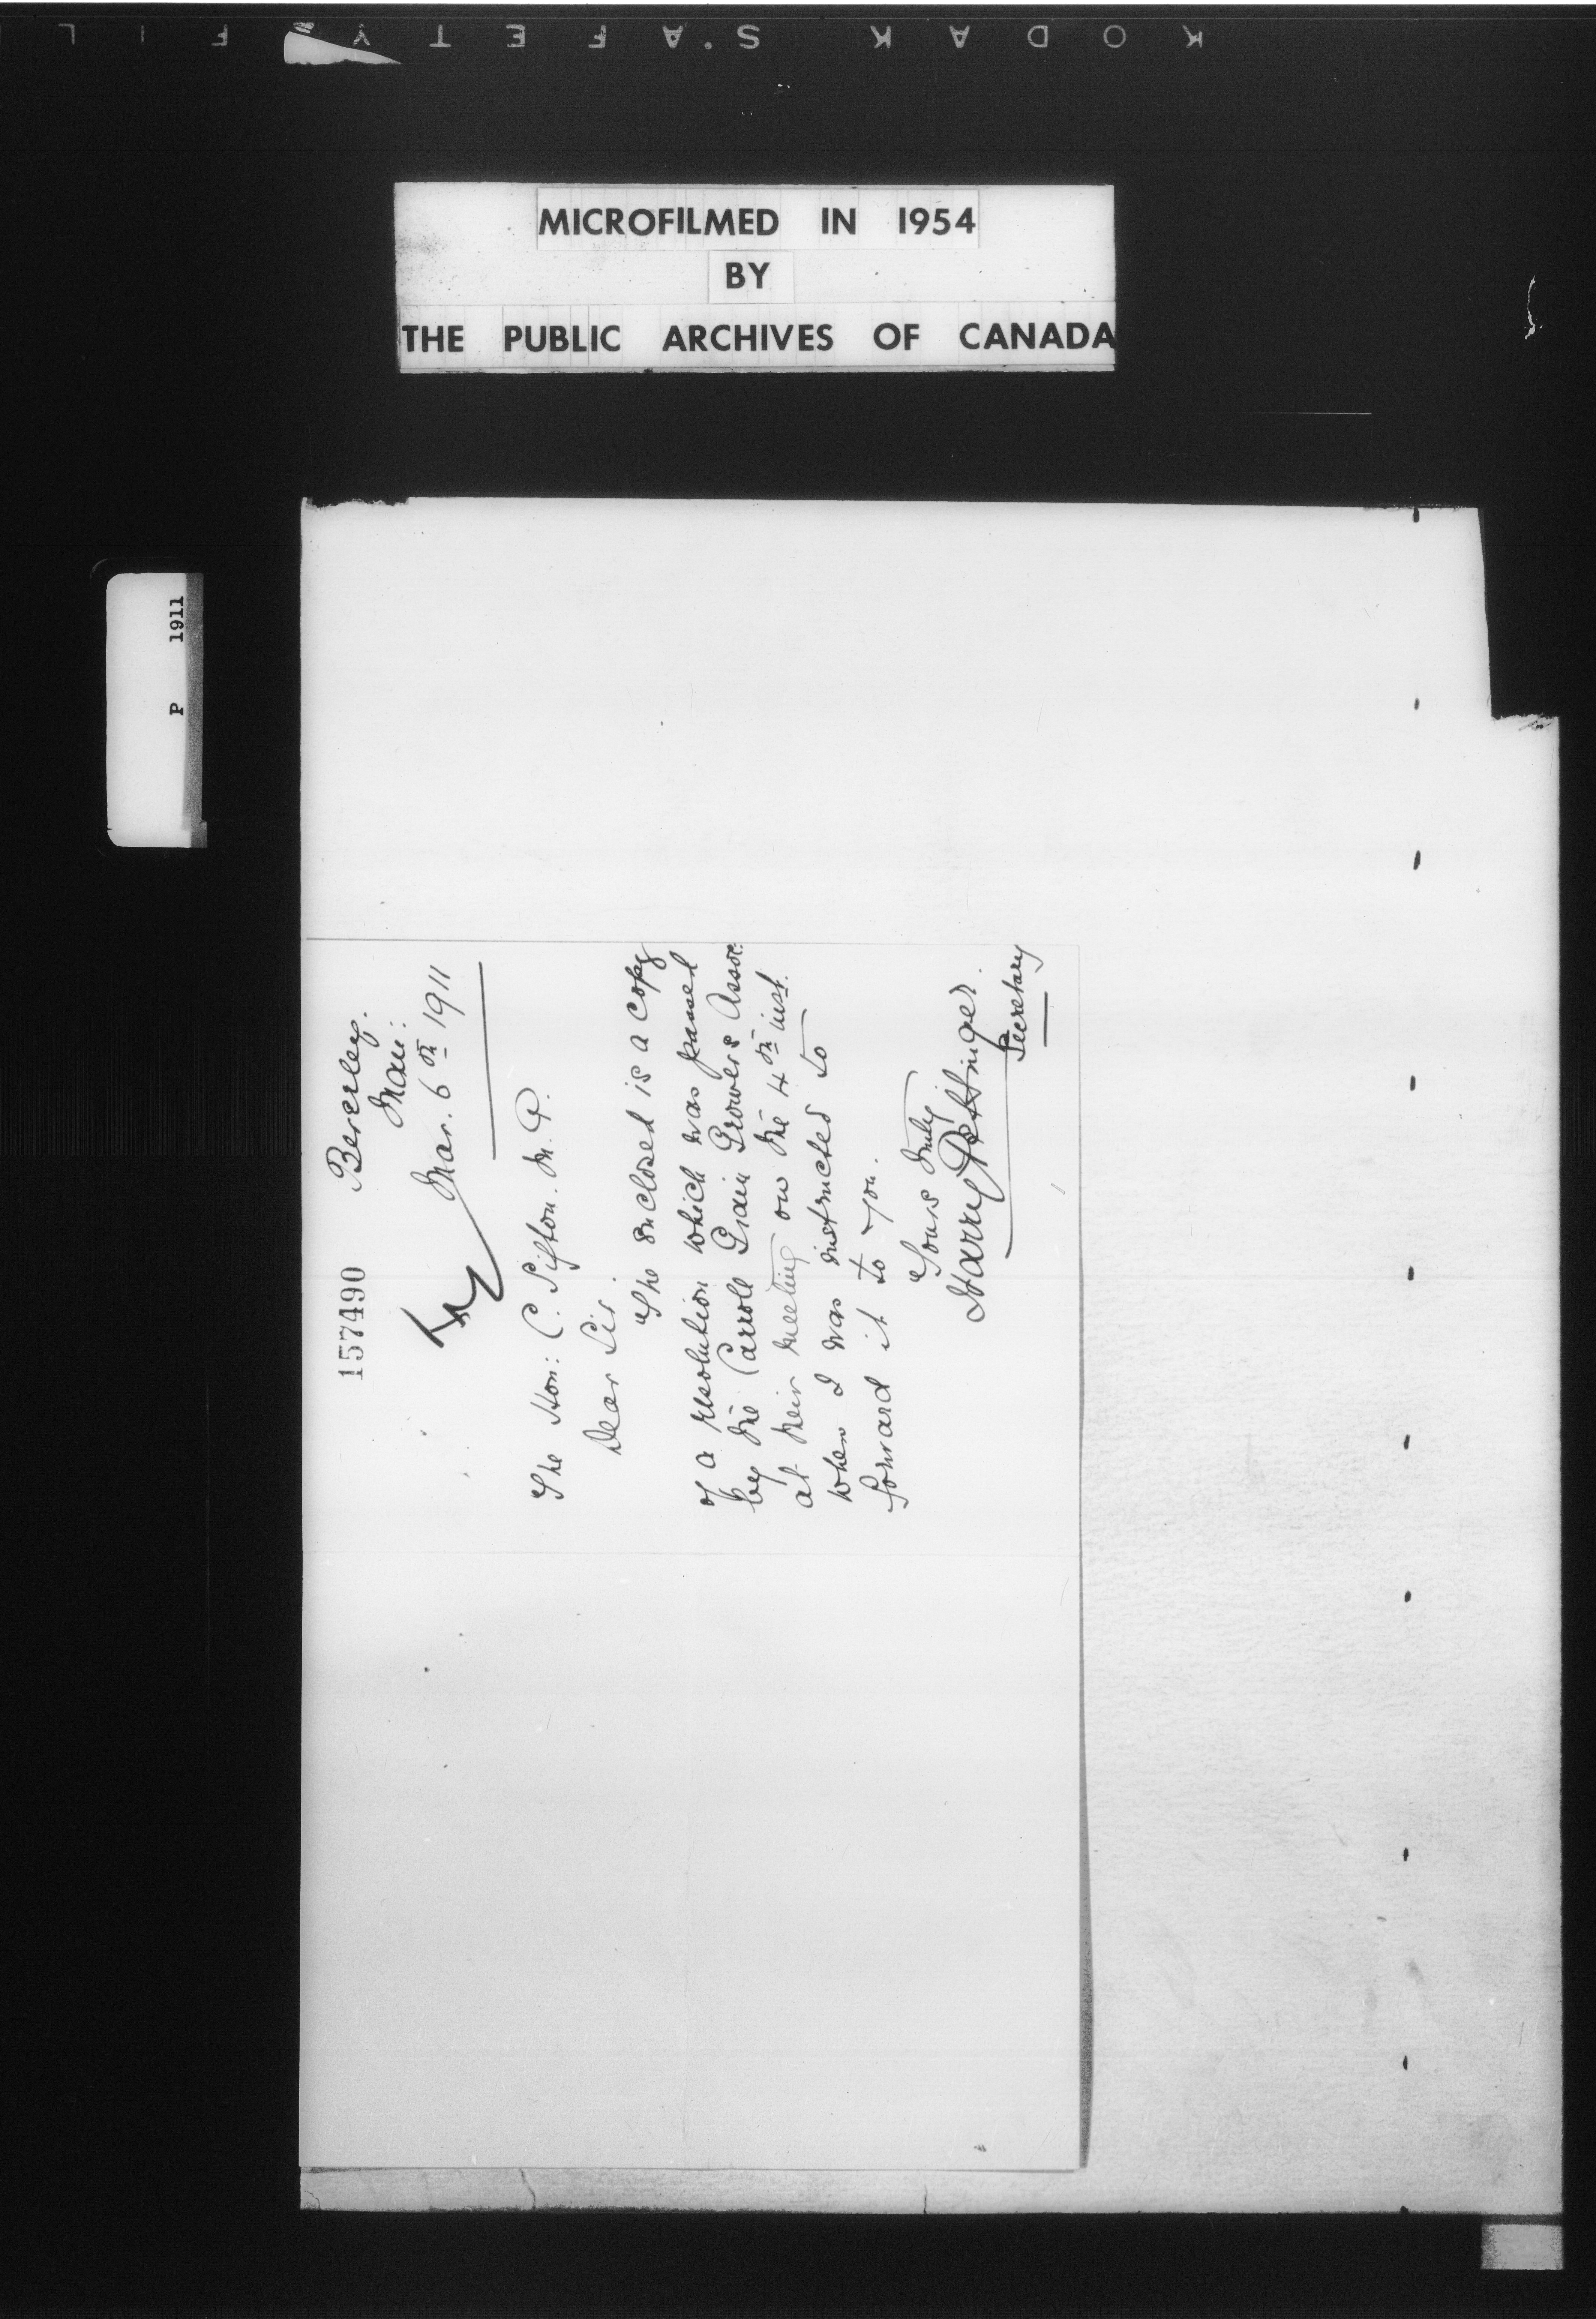 KODAK S.AFETY FIL
MICROFILMED IN 1954
BY
THE PUBLIC ARCHIVES OF CANADA
P 1911
157490
Beresley.
Man:
Mar. 6th 1911
The Hon: C. Sifton. M. P.
Dear Sir.
The enclosed is a copy
of a resolution which was passed
by the Carroll Grain Growers Assoc.
at their meeting on the 4th inst.
when I was instructed to
forward it to you.
Yours truly
Harry Pettinger.
Secretary